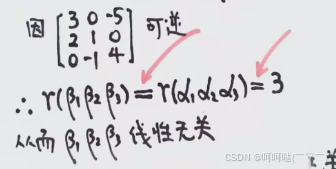 因 [3 0 -5
2 1 0
0 -1 4] 可逆
∴ r(β₁β₂β₃) = r(α₁α₂α₃) = 3
从而 β₁β₂β₃ 线性无关
CSDN @呵呵哒(￣▽￣)"